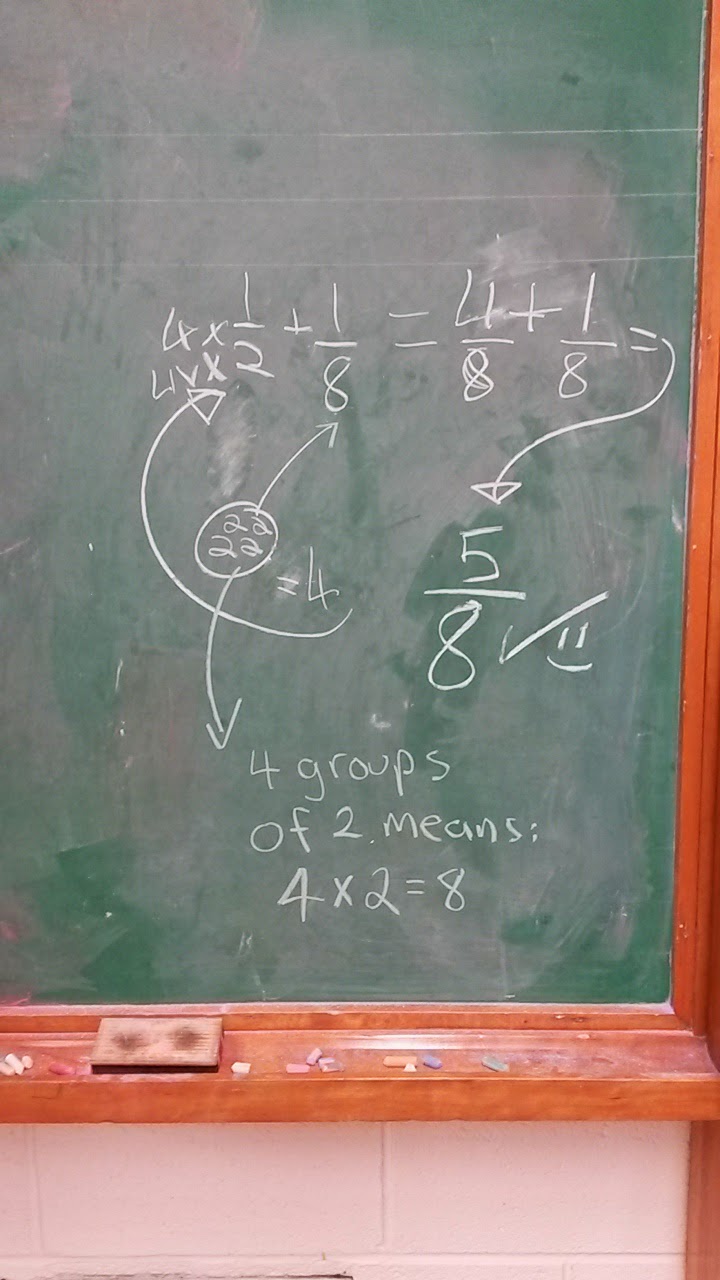 4×1/2 + 1/8 = 4/8 + 1/8 =
4×
2 2
2 2
= 4
5/8 ✓
4 groups
of 2 means:
4×2=8